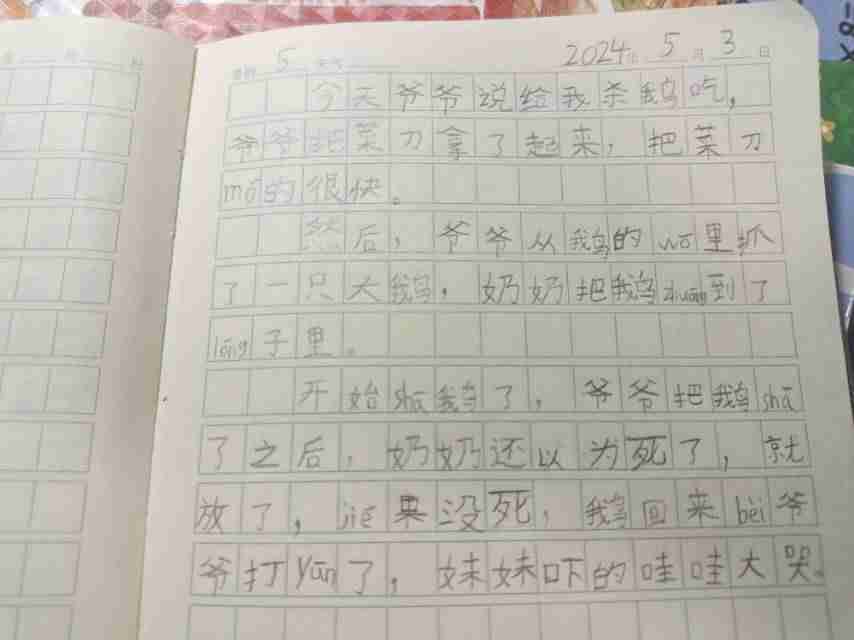 5 2024年 5 月 3 日
今天爷爷说给我杀鹅吃，
爷爷把菜刀拿了起来，把菜刀
mō的很快。
然后，爷爷从鹅的wō里抓
了一只大鹅，奶奶把鹅zhuāng到了
lóng子里。
开始shā鹅了，爷爷把鹅shā
了之后，奶奶还以为死了，就
放了，jiē果没死，鹅回来bèi爷
爷打yūn了，妹妹吓的哇哇大哭。